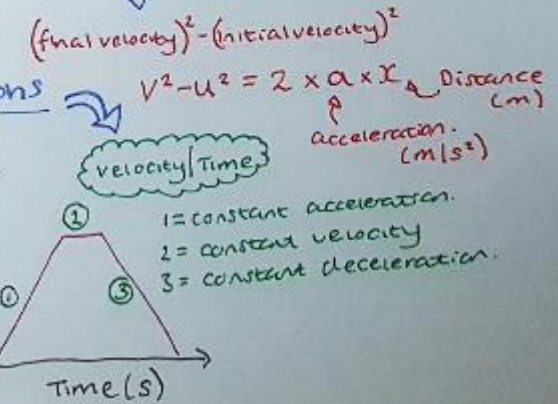 (final velocity)² - (initial velocity)²
V² - u² = 2 × a × x
Distance
(m)
acceleration.
(m/s²)
velocity/Time
1 = constant acceleration.
2 = constant velocity
3 = constant deceleration.
①
②
③
Time (s)